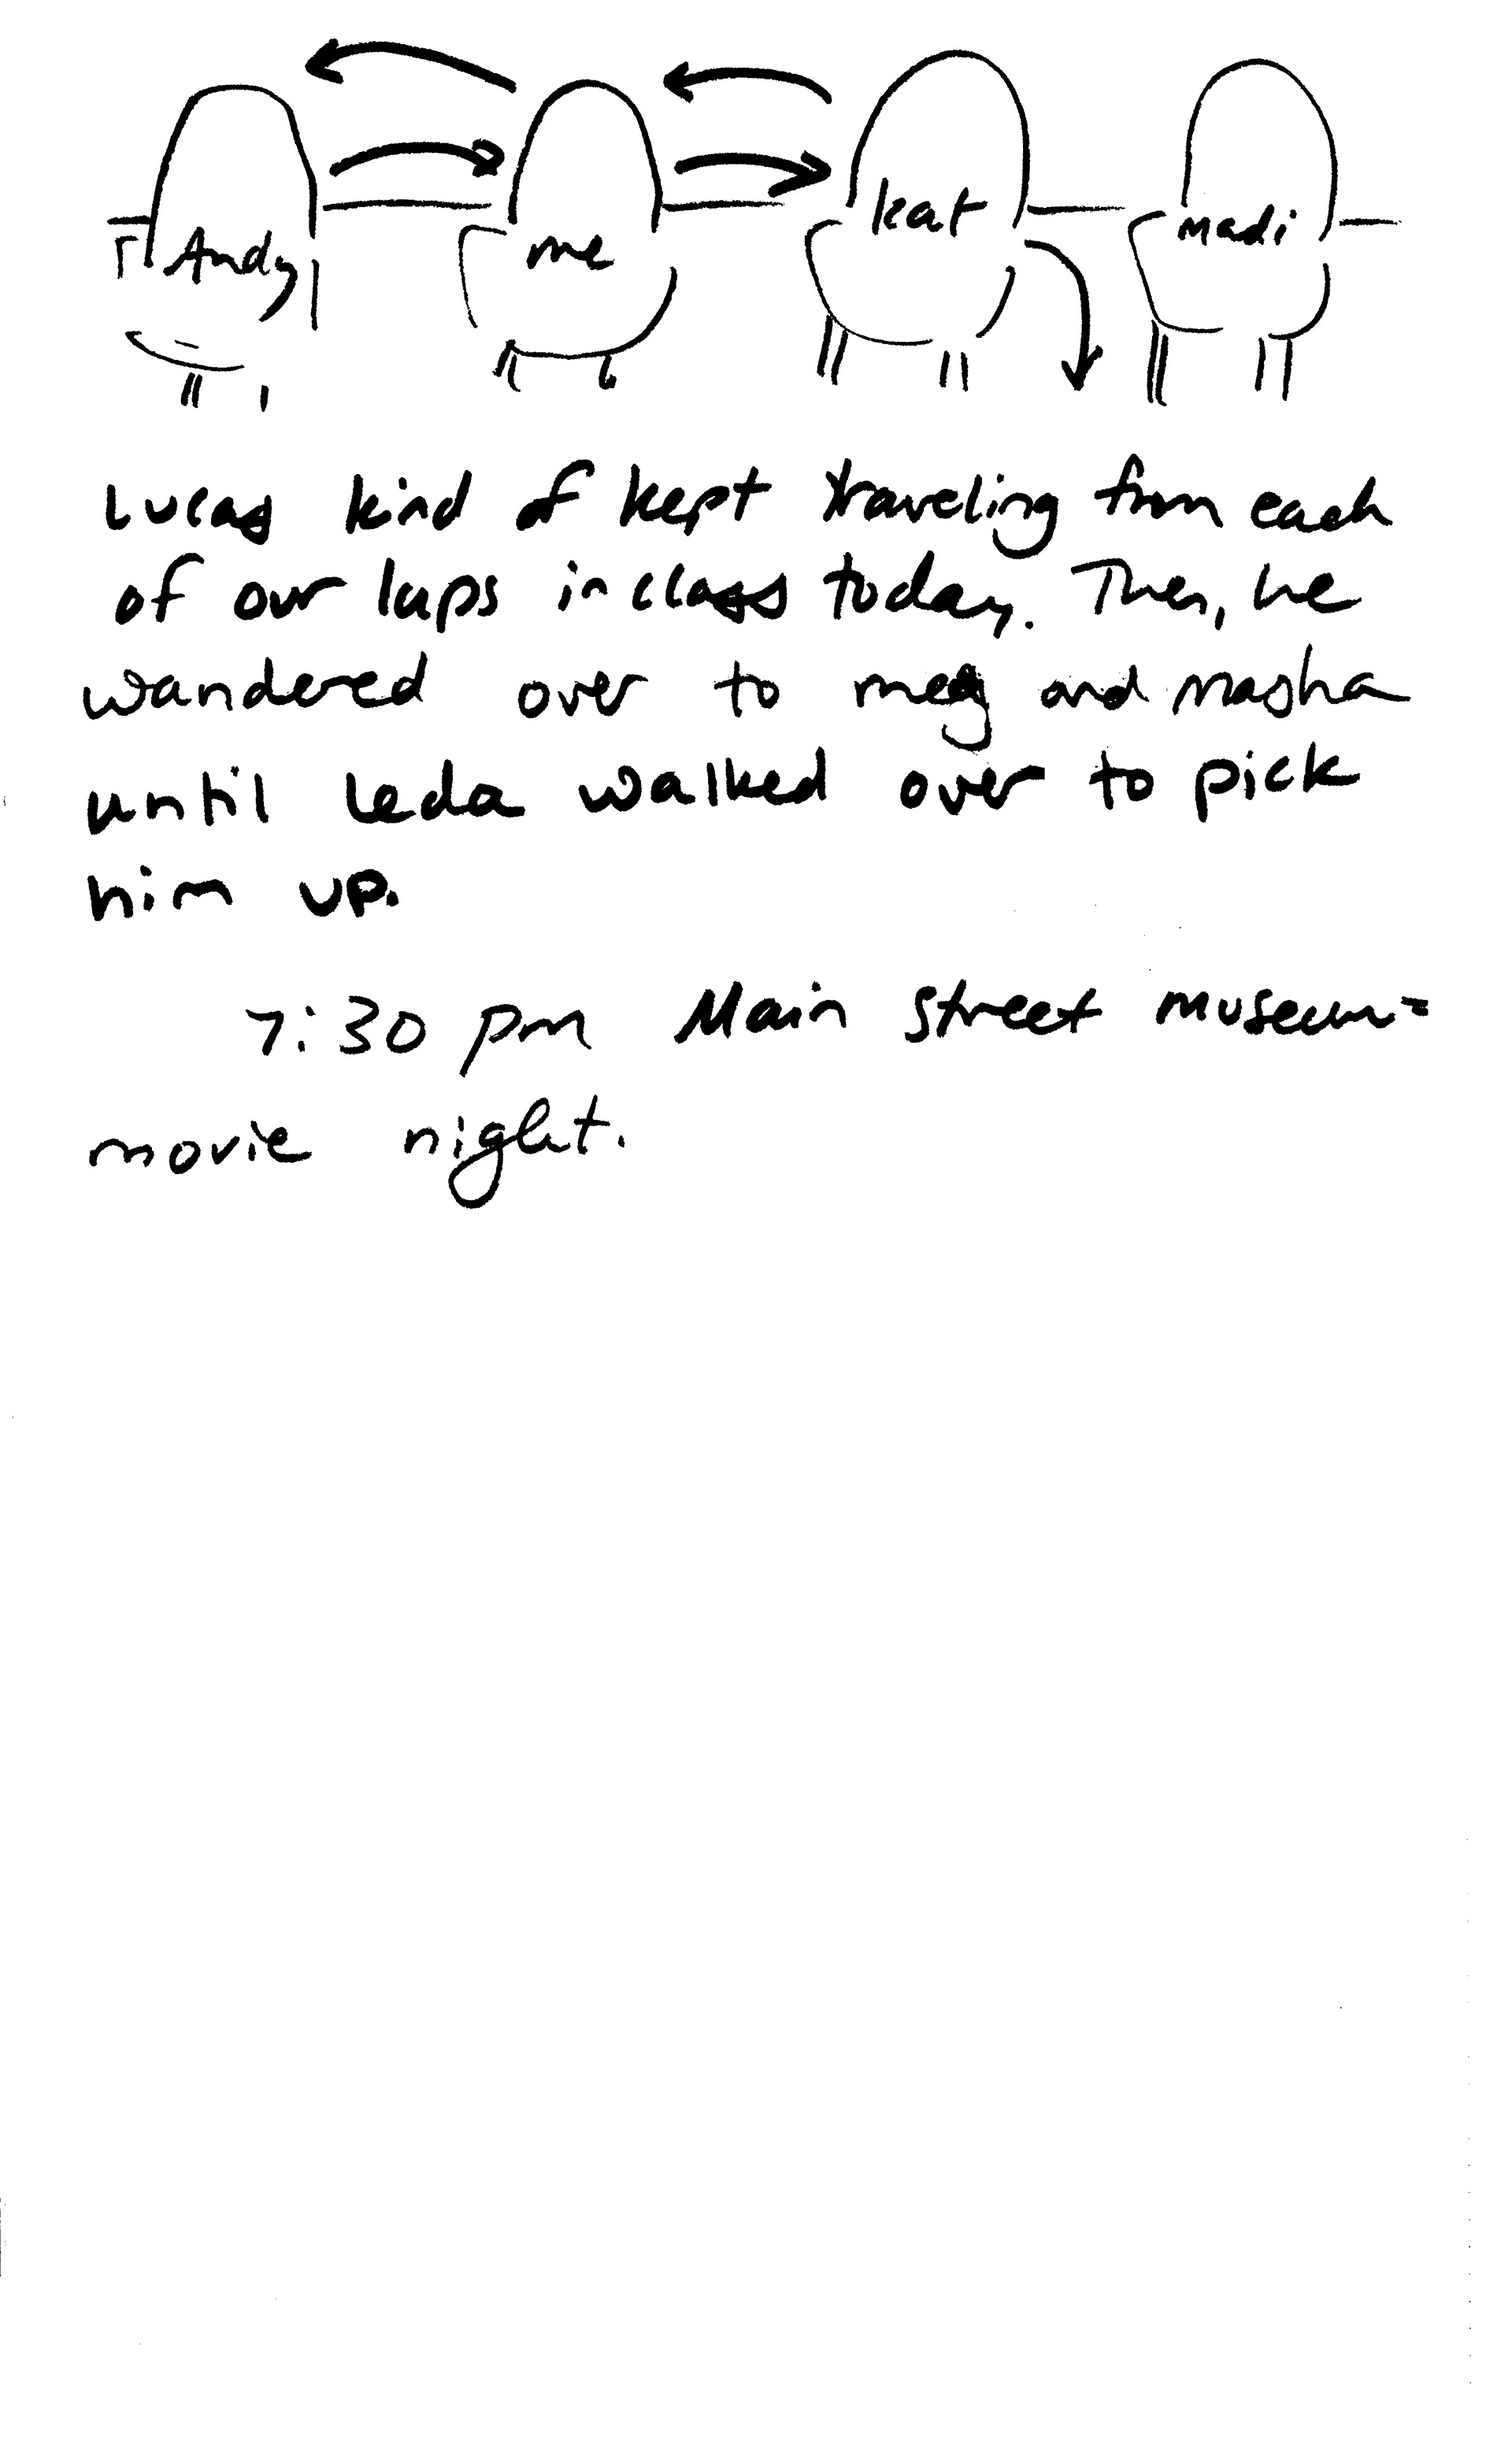 Andy me kat Madi
Lucas kind of kept traveling from each
of our laps in class today. Then, he
wandered over to meg and masha
until leda walked over to pick
him up.
7:30 pm Main Street Museum-
movie night.